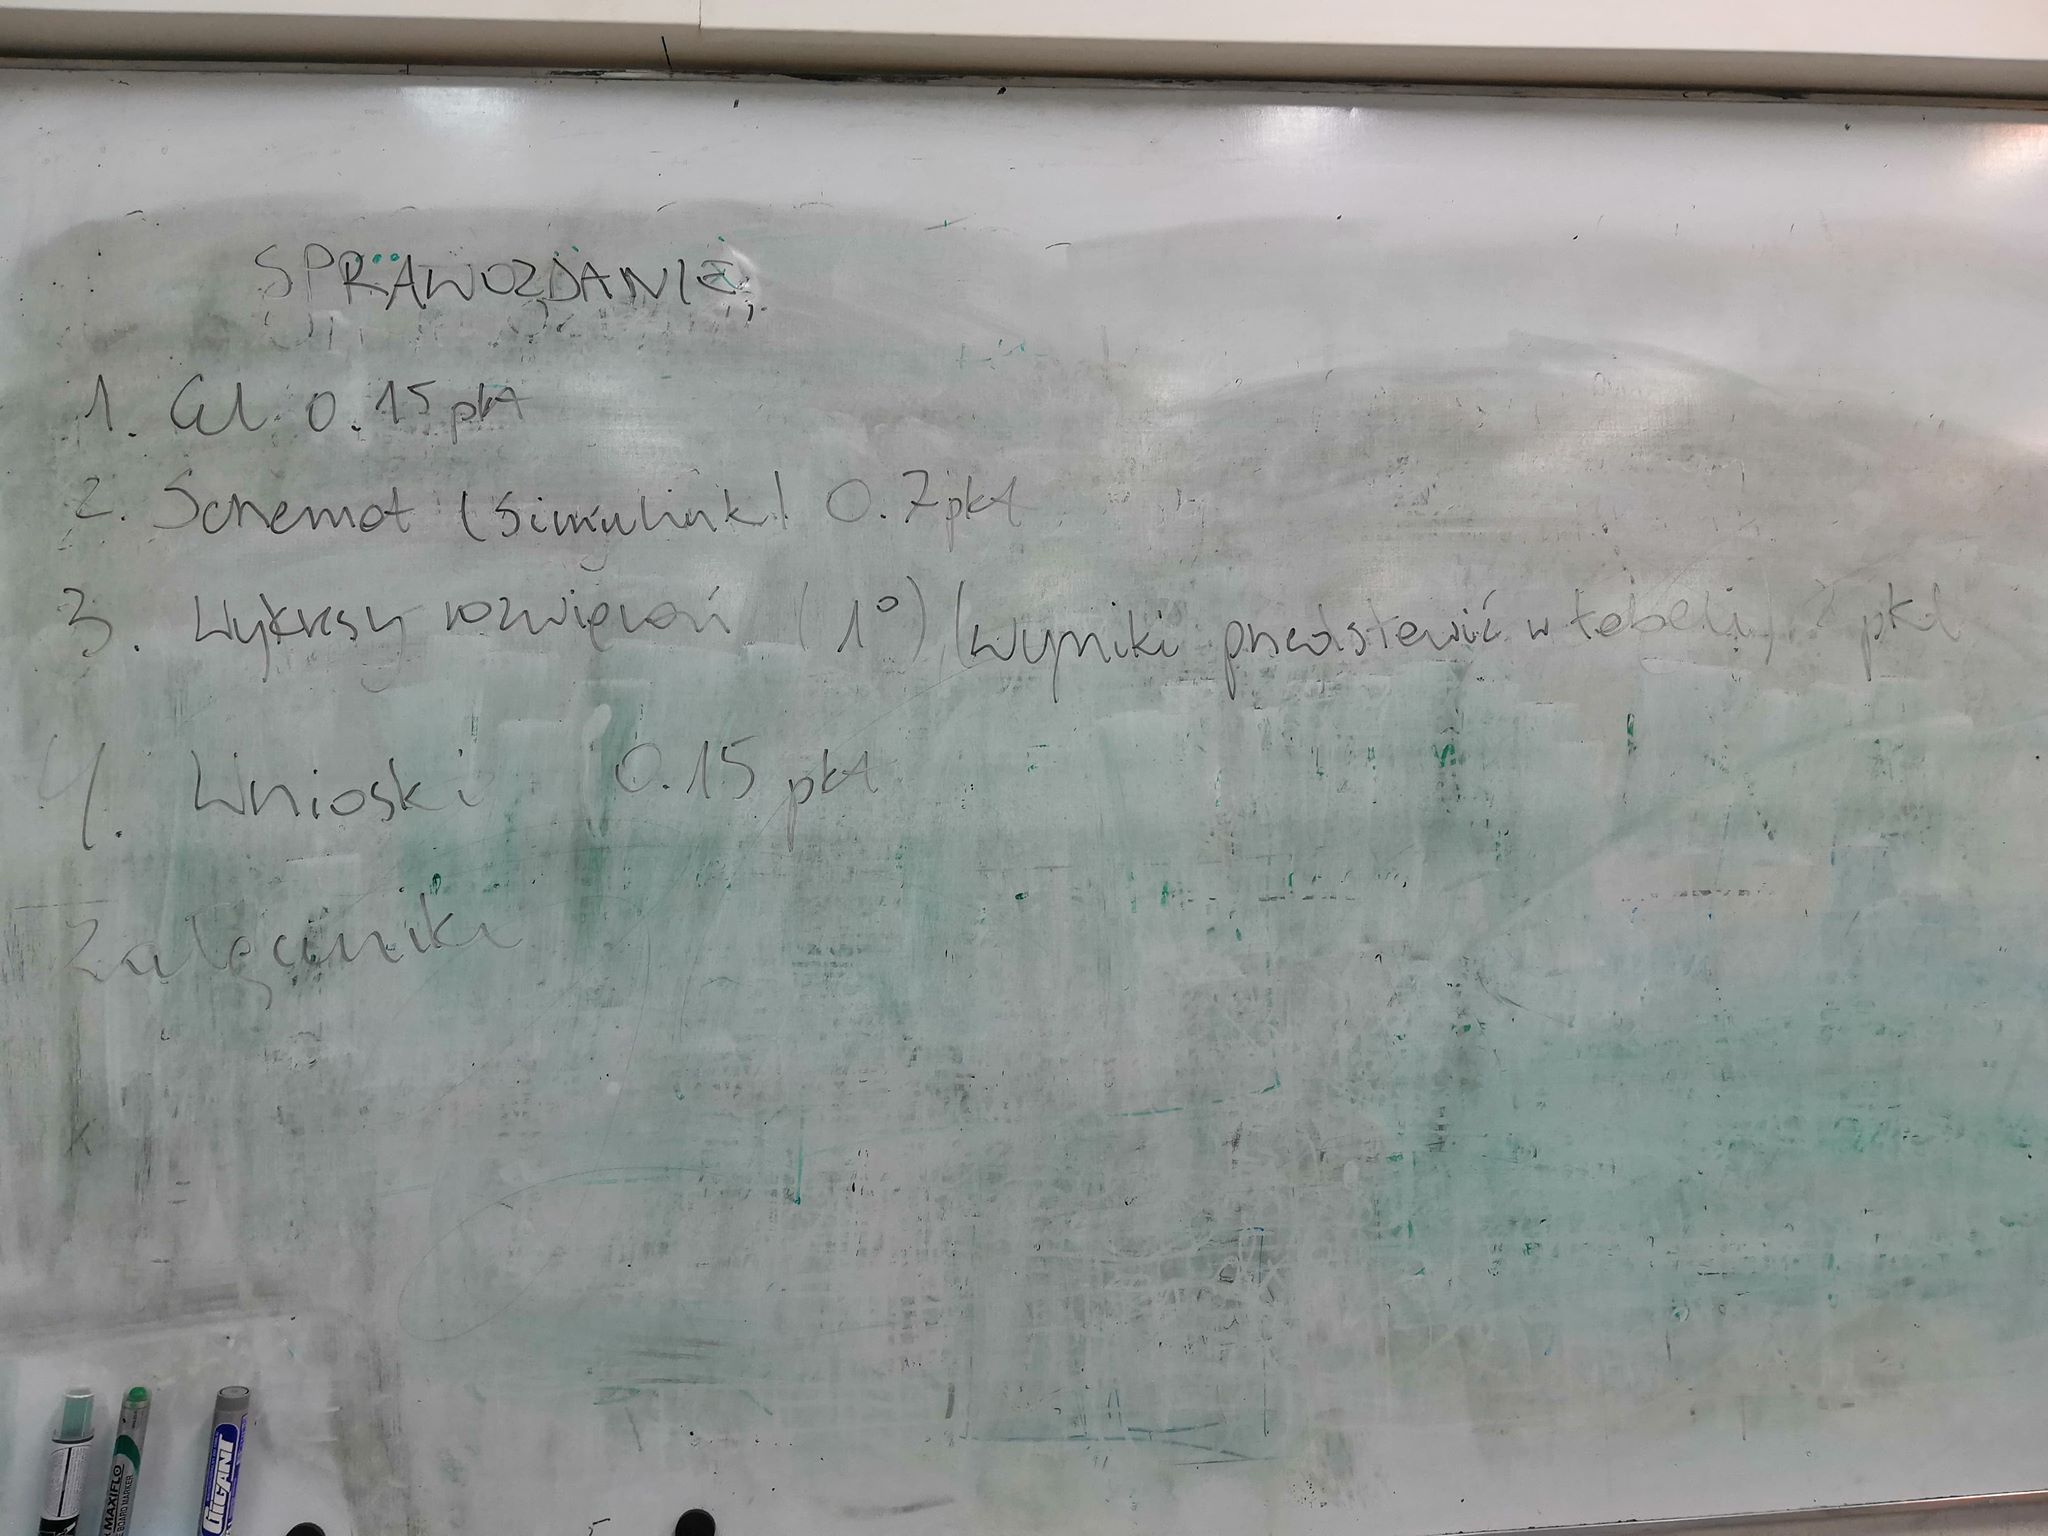 SPRAWOZDANIE
1. Cel 0.15 pkt
2. Schemat (Simulink) 0.7 pkt
3. Wykresy rozwiązań (1°) (wyniki przedstawić w tabeli) pkt
4. Wnioski 0.15 pkt
Załączniki
MAXIFLO
BOARD MARKER
GIGANT